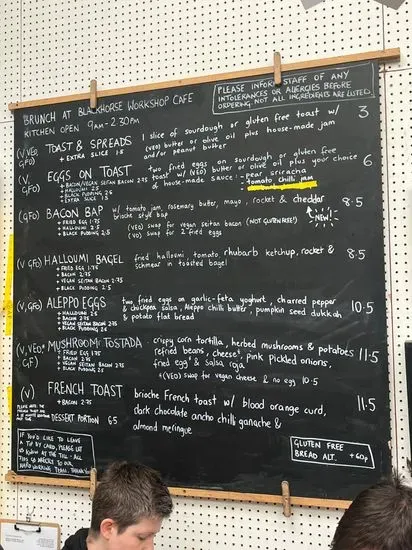 BRUNCH AT BLACKHORSE WORKSHOP CAFE
KITCHEN OPEN 9AM - 2.30PM
PLEASE INFORM STAFF OF ANY
INTOLERANCES OR ALLERGIES BEFORE
ORDERING. NOT ALL INGREDIENTS ARE LISTED
(V, VEO, GFO) TOAST & SPREADS
+ EXTRA SLICE 1.5
1 slice of sourdough or gluten free toast w/ 3
(VEO) butter or olive oil plus house-made jam
and/or peanut butter
(V, GFO) EGGS ON TOAST
+ BACON/VEGAN SEITAN BACON 2.75
+ HALLOUMI 2.5
+ BLACK PUDDING 2.5
+ EXTRA SLICE 1.5
two fried eggs on sourdough or gluten free 6
toast w/ (VEO) butter or olive oil plus your choice
& house-made sauce: - pear sriracha
- tomato chilli jam
(GFO) BACON BAP
+ FRIED EGG 1.75
+ HALLOUMI 2.5
+ BLACK PUDDING 2.5
w/ tomato jam, rosemary butter, mayo, rocket & cheddar 8.5
brioche style bap
(VEO) swap for vegan seitan bacon (NOT GLUTEN FREE!)
(V) swap for 2 fried eggs
NEW!
(V, GFO) HALLOUMI BAGEL
+ FRIED EGG 1.75
+ BACON 2.75
+ VEGAN SEITAN BACON 2.75
+ BLACK PUDDING 2.5
fried halloumi, tomato, rhubarb ketchup, rocket & 8.5
schmear in toasted bagel
(V, GFO) ALEPPO EGGS
+ HALLOUMI 2.5
+ BACON 2.75
+ VEGAN SEITAN BACON 2.75
+ BLACK PUDDING 2.5
two fried eggs on garlic-feta yoghurt, charred pepper 10.5
& chickpea salsa, Aleppo chilli butter, pumpkin seed dukkah
& potato flat bread
(V, VEO*, GF) MUSHROOM TOSTADA
+ FRIED EGG 1.75
+ BACON 2.75
+ VEGAN SEITAN BACON 2.75
+ BLACK PUDDING 2.5
crispy corn tortilla, herbed mushrooms & potatoes 11.5
refried beans, cheese*, pink pickled onions,
fried egg* & salsa roja
*(VEO) swap for vegan cheese & no egg 10.5
(V) FRENCH TOAST
+ BACON 2.75
DESSERT PORTION 6.5
brioche French toast w/ blood orange curd, 11.5
dark chocolate ancho chilli ganache &
almond meringue
IF YOU'D LIKE TO LEAVE
A TIP BY CARD, PLEASE LET
US KNOW AT THE TILL - ALL
TIPS GO DIRECTLY TO OUR
HARD WORKING TEAM. THANK YOU
GLUTEN FREE
BREAD ALT. + 60p